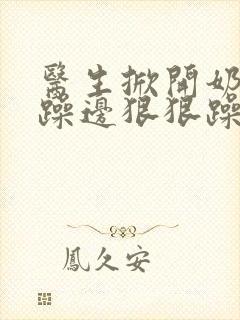 醫生掀開奶
躁邊狠狠躁
鳳久安